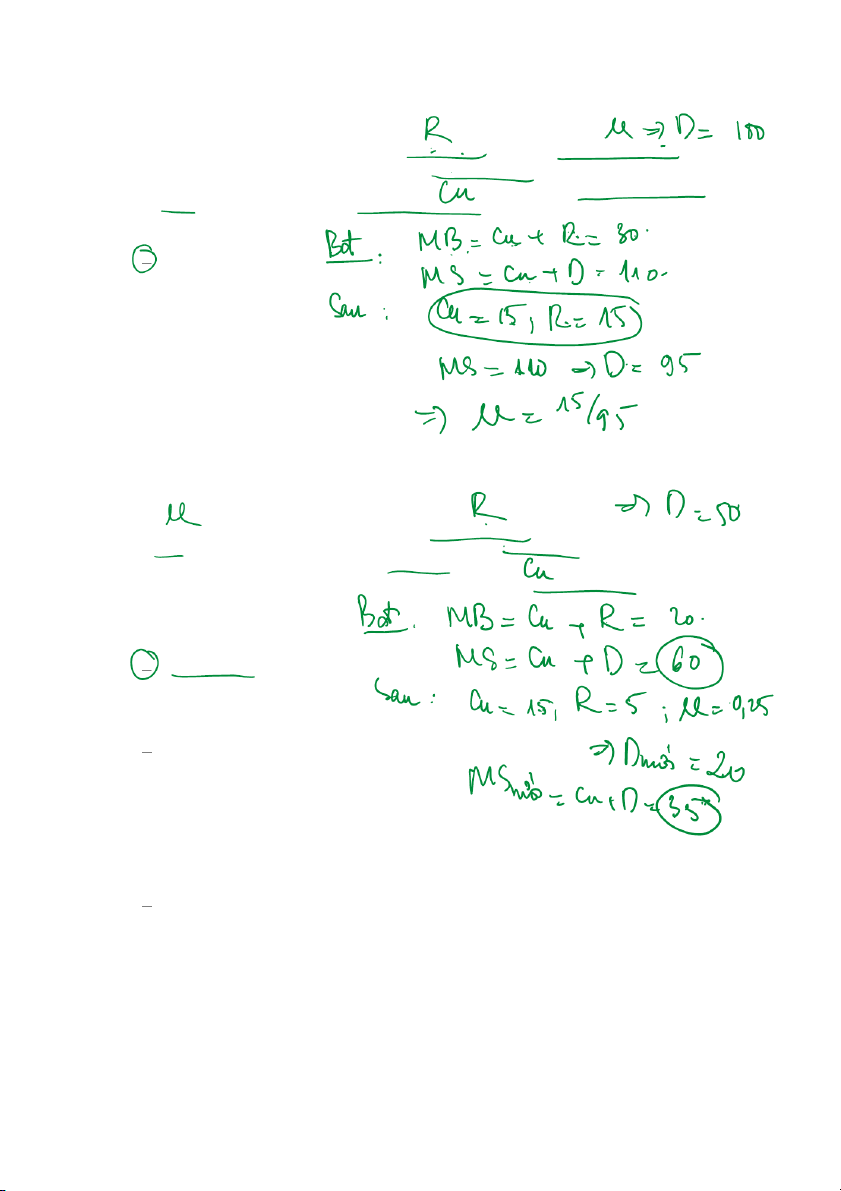 R rr => D = 100
Cu
Bđ : MB = Cu + R = 30.
MS = Cu + D = 110.
Sau : Cu = 15, R = 15
MS = 110 => D = 95
=> rr = 15/95
rr R => D = 50
Cu
Bđ : MB = Cu + R = 20.
MS = Cu + D = 60
Sau : Cu = 15, R = 5 ; rr = 0,25
=> D mới = 20
MS mới = Cu + D = 35